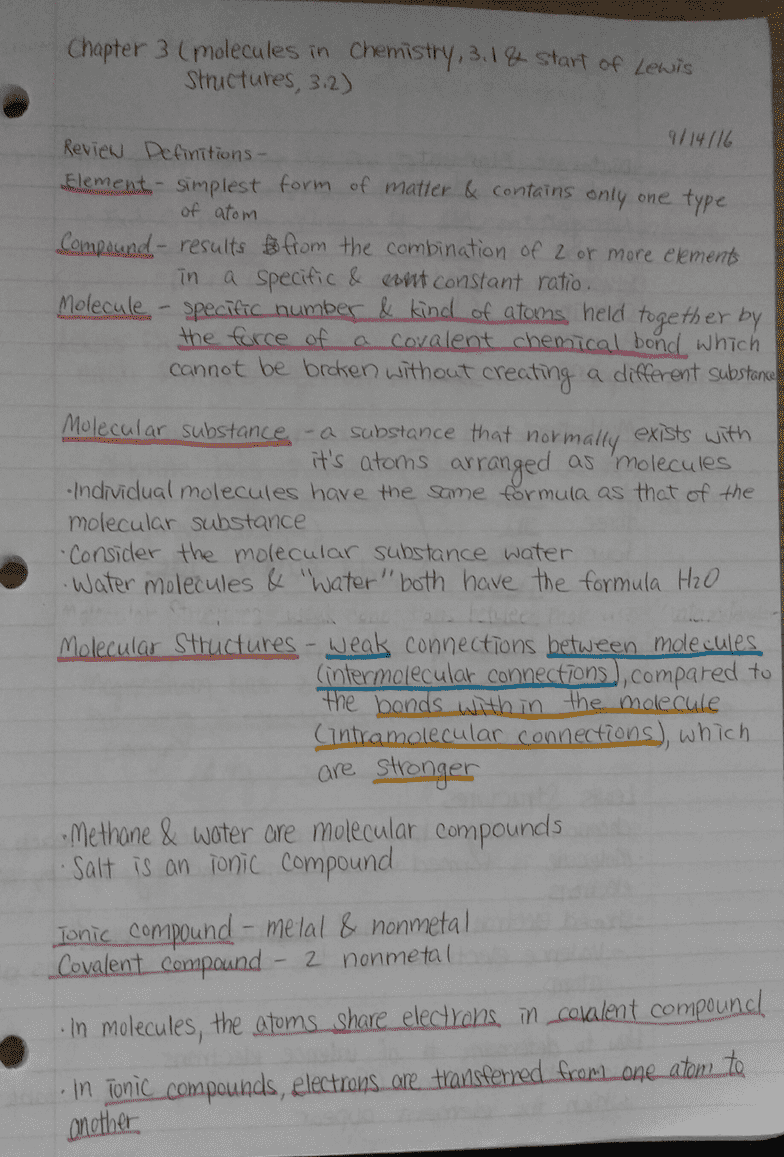 Chapter 3 (molecules in Chemistry, 3.1 & start of Lewis
Structures, 3.2)
9/14/16
Review Definitions-
Element - simplest form of matter & contains only one type
of atom
Compound - results from the combination of 2 or more elements
in a specific & constant ratio.
Molecule - specific number & kind of atoms held together by
the force of a covalent chemical bond which
cannot be broken without creating a different substance
Molecular substance - a substance that normally exists with
it's atoms arranged as molecules
·Individual molecules have the same formula as that of the
molecular substance
·Consider the molecular substance water
·Water molecules & "water" both have the formula H2O
Molecular Structures - weak connections between molecules
(intermolecular connections), compared to
the bonds within the molecule
(intramolecular connections), which
are stronger
·Methane & water are molecular compounds
·Salt is an ionic compound
Ionic compound - metal & nonmetal
Covalent compound - 2 nonmetal
·In molecules, the atoms share electrons in covalent compound
·In ionic compounds, electrons are transferred from one atom to
another